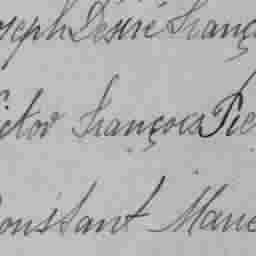 oseph Désiré Franç
ictor François Pie
Constant Marie